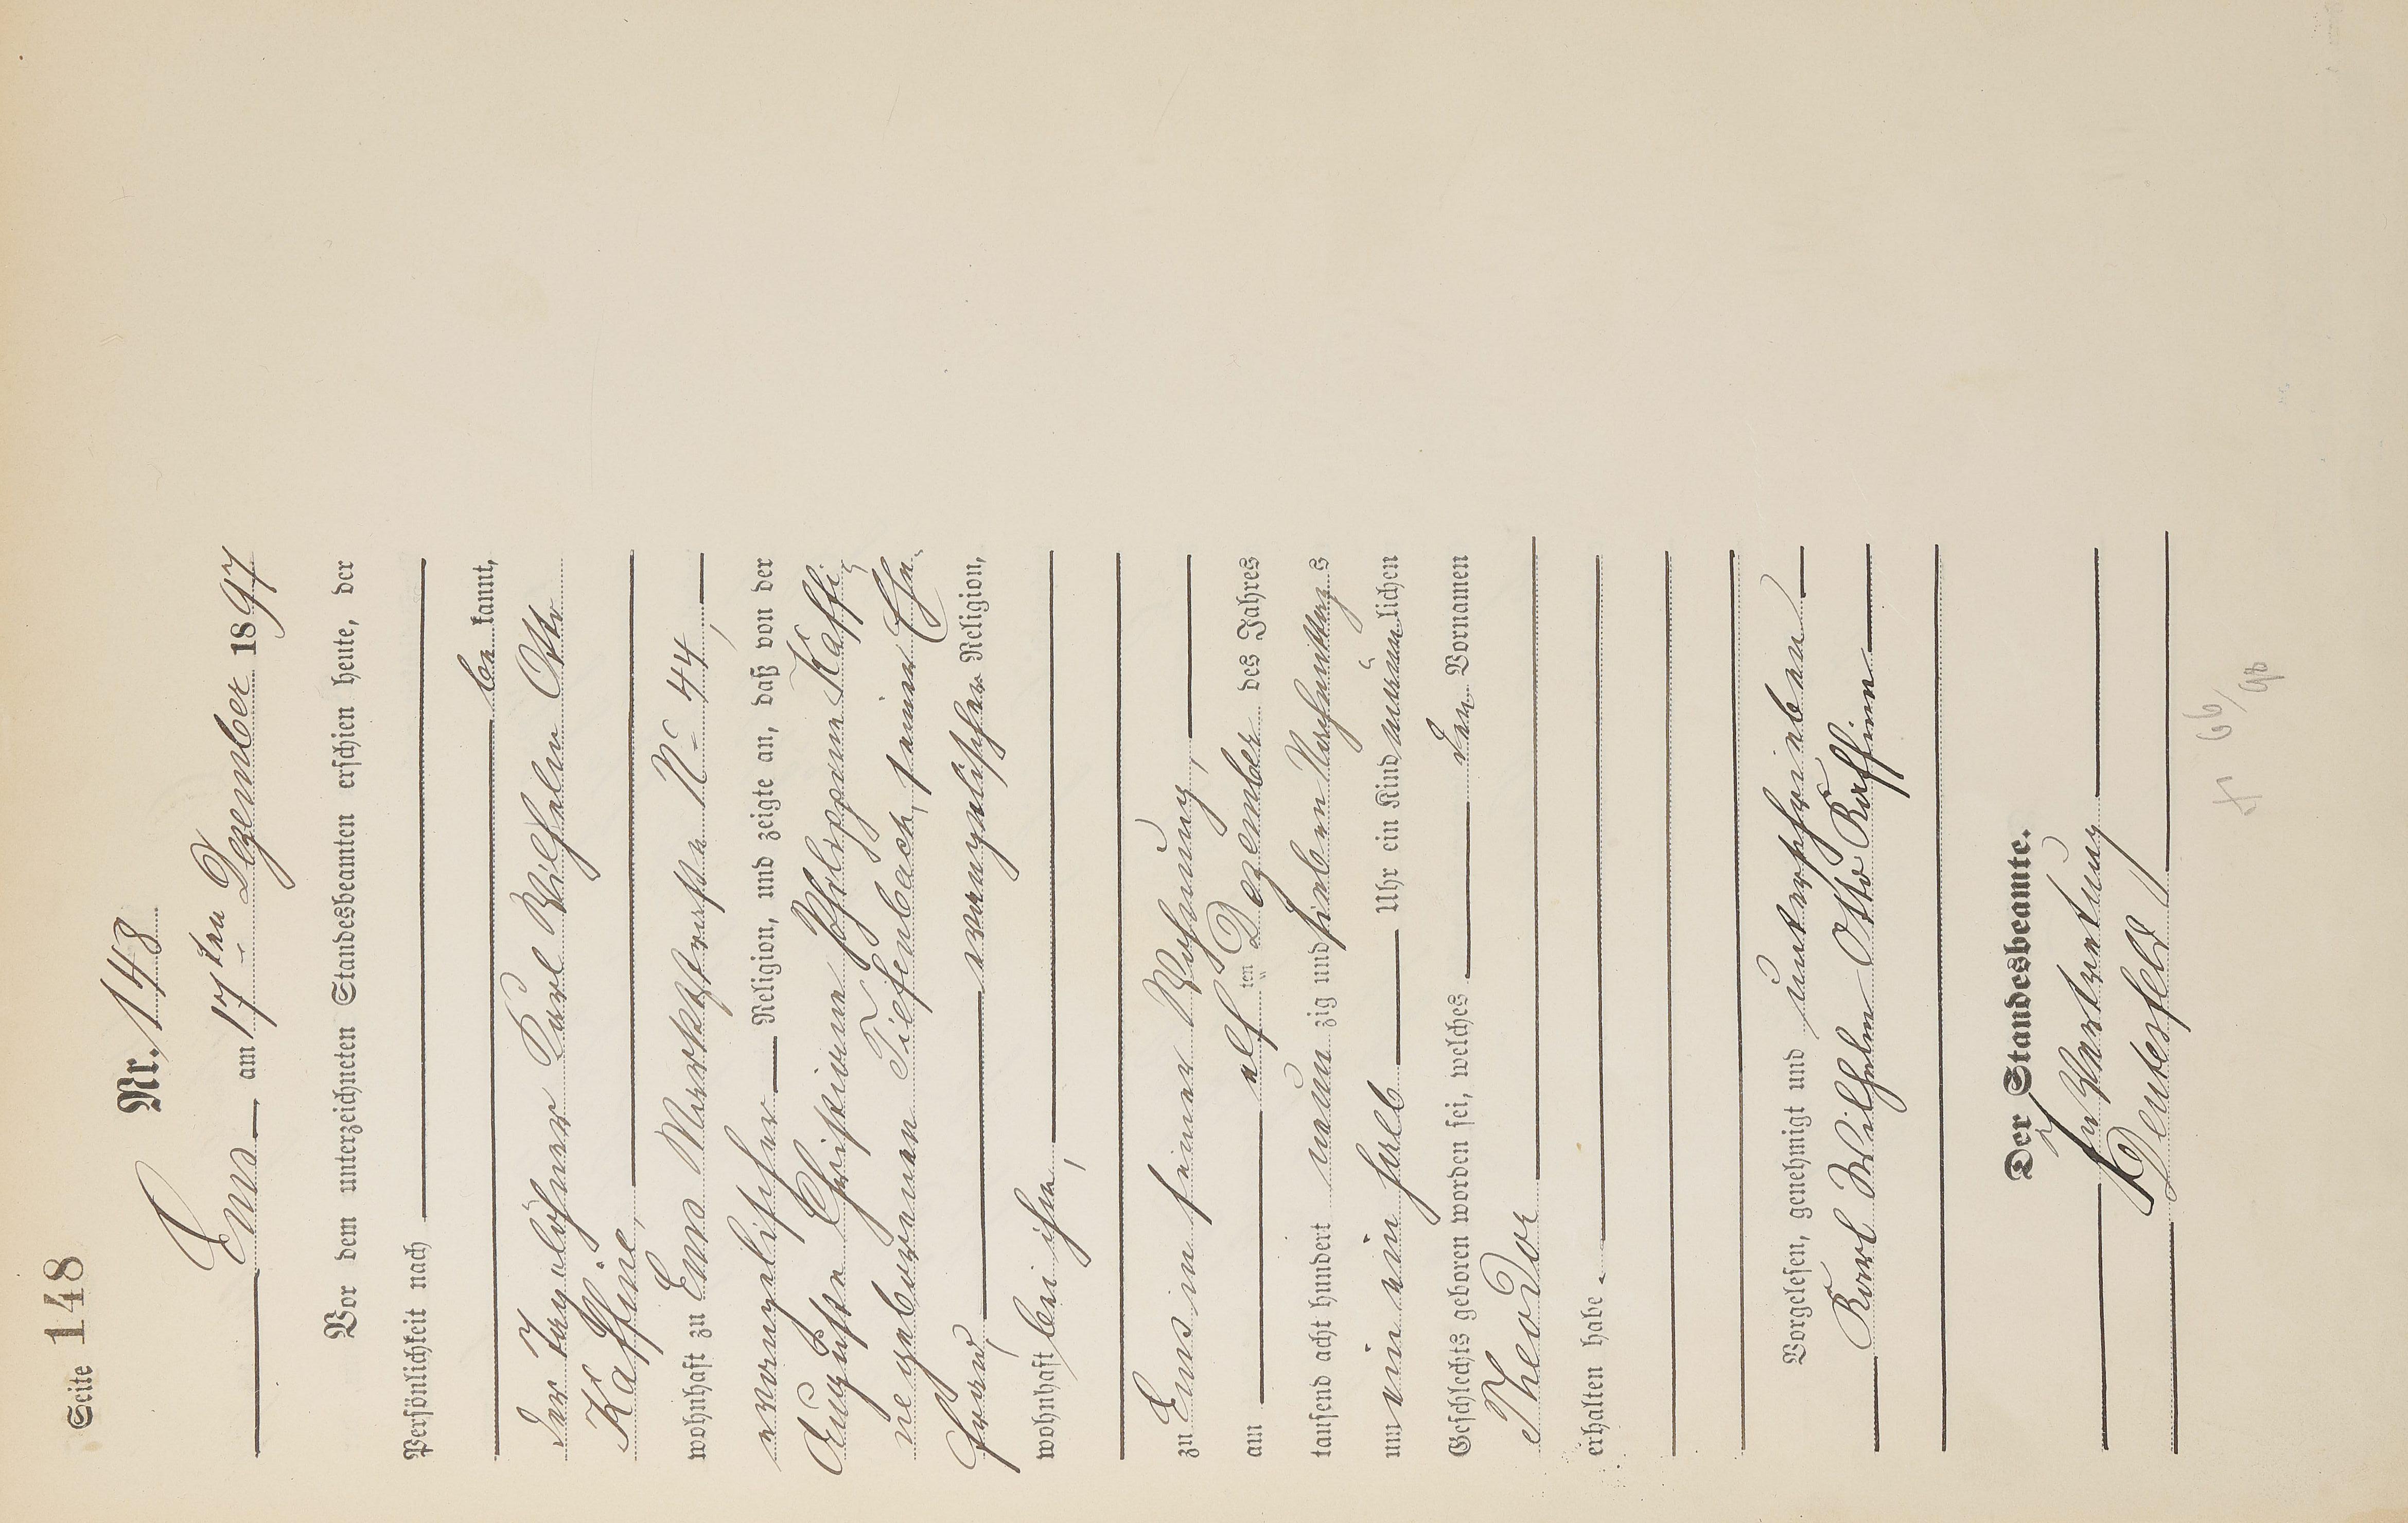 Seite 148
Nr. 148
Ems am 17ten Dezember 1897
Vor dem unterzeichneten Standesbeamten erschien heute, der
Persönlichkeit nach
be kannt,
der Tagelöhner Karl Wilhelm Otto
Kaffine,
wohnhaft zu Ems Marktstraße No 44,
evangelischer Religion, und zeigte an, daß von der
Auguste Christiane Philippine Kaffi-
ne geborenen Tiefenbach, seiner Ehe-
frau,
evangelischer Religion,
wohnhaft bei ihm,
zu Ems in seiner Wohnung,
am elf ten Dezember des Jahres
tausend acht hundert neun zig und sieben Nachmittags
um ein ein halb Uhr ein Kind männ lichen
Geschlechts geboren worden sei, welches den Vornamen
Theodor
erhalten habe.
Vorgelesen, genehmigt und unterschrieben
Karl Wilhelm Otto Kaffine
Der Standesbeamte.
In Vertretung
+ 66/98